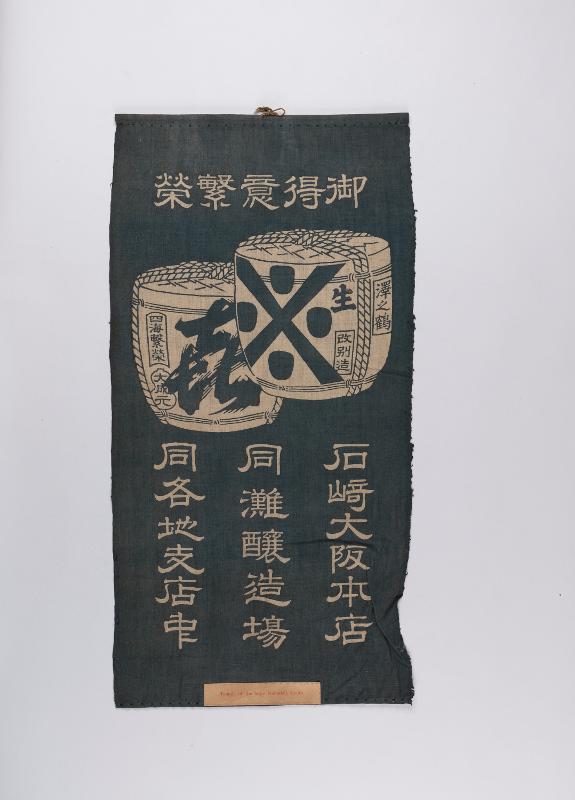 御得意繁榮
澤之鶴
生
改別造
㐂
四海繁榮
石﨑大阪本店
同灘醸造場
同各地支店中